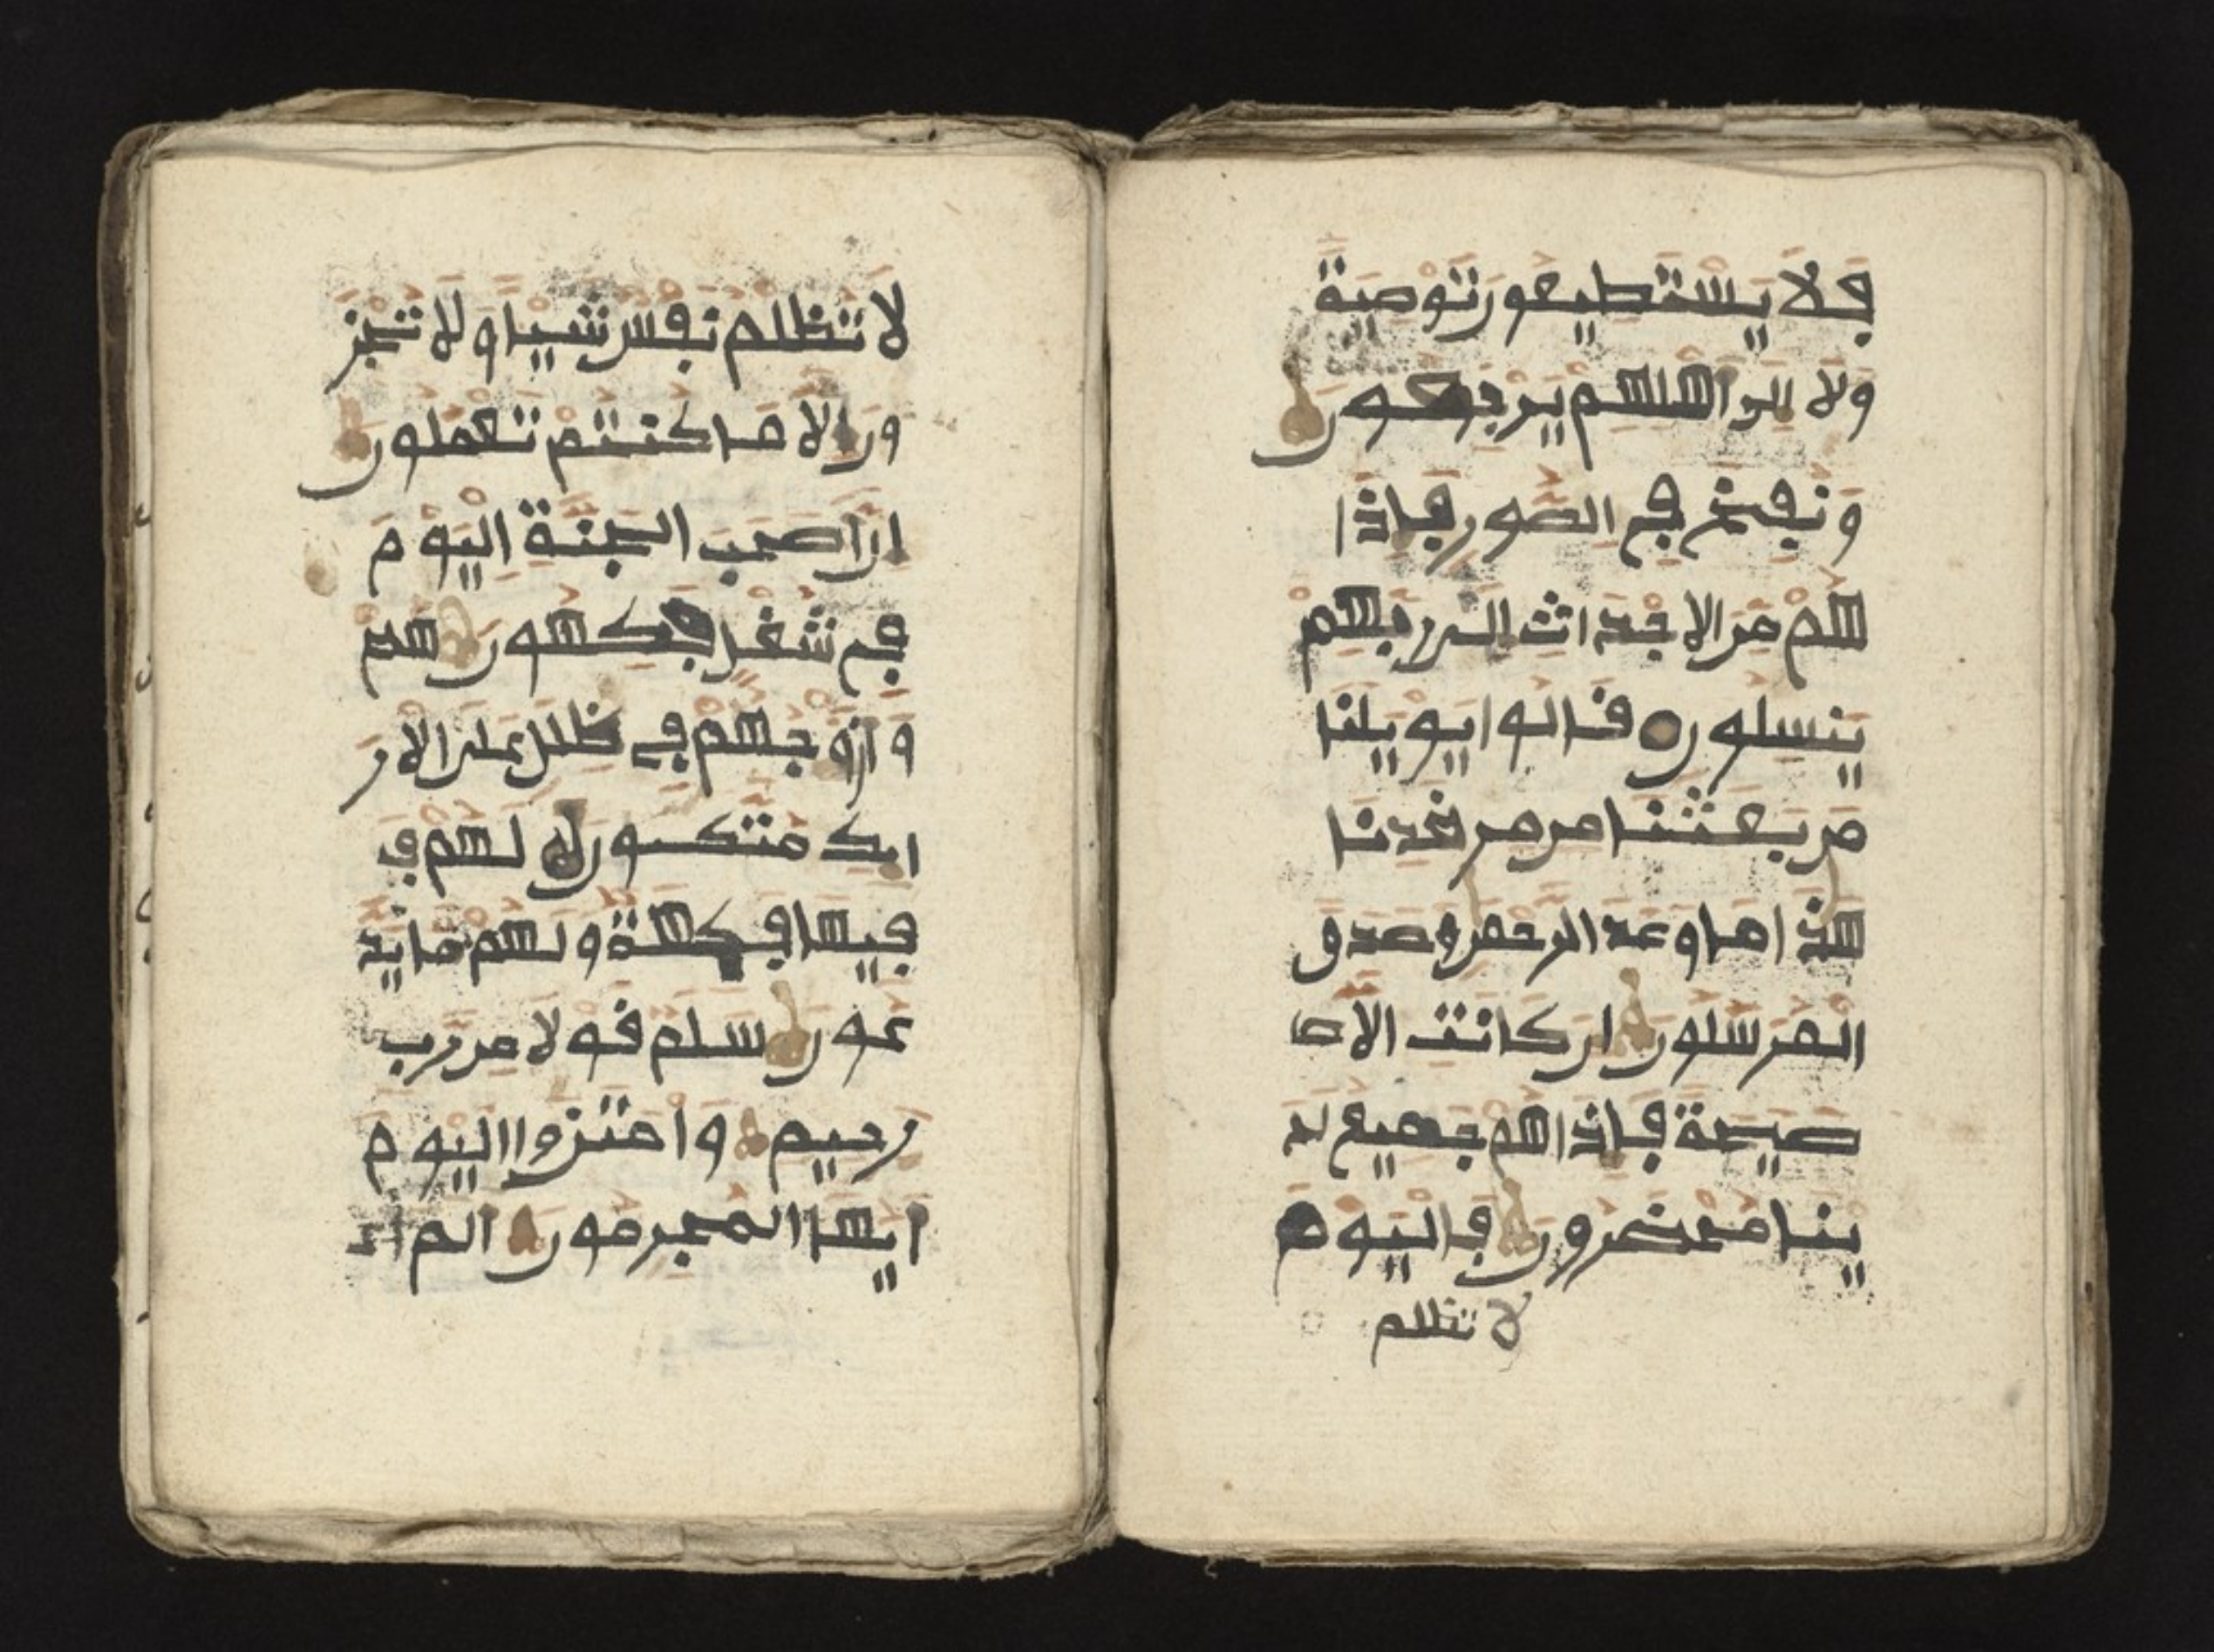 فَلَا يَسْتَطِيعُونَ تَوْصِيَةً
وَلَا إِلَى أَهْلِهِمْ يَرْجِعُونَ
وَنُفِخَ فِي الصُّورِ فَإِذَا
هُمْ مِنَ الْأَجْدَاثِ إِلَى رَبِّهِمْ
يَنْسِلُونَ قَالُوا يَوَيْلَنَا
مَنْ بَعَثَنَا مِنْ مَرْقَدِنَا
هَذَا مَا وَعَدَ الرَّحْمَنُ وَصَدَقَ
الْمُرْسَلُونَ إِنْ كَانَتْ إِلَّا ص
صَيْحَةً فَإِذَا هُمْ جَمِيعٌ لَدَ
يْنَا مُحْضَرُونَ فَالْيَوْمَ
لا تظلم
لَا تُظْلَمُ نَفْسٌ شَيْئًا وَلَا تُجْزَ
وْنَ إِلَّا مَا كُنْتُمْ تَعْمَلُونَ
إِنَّ أَصْحَبَ الْجَنَّةِ الْيَوْمَ
فِي شُغْلٍ فَكِهُونَ هُمْ
وَأَزْوَجُهُمْ فِي ظِلَلٍ عَلَى الْأَرَ
ايِكِ مُتَّكِـُونَ لَهُمْ فِ
فِيهَا فَكِهَةٌ وَلَهُمْ مَا يَدَّ
عُونَ سَلَمٌ قَوْلًا مِنْ رَبٍّ
رَحِيمٍ وَامْتَزُوا الْيَوْمَ
أَيُّهَا الْمُجْرِمُونَ أَلَمْ أَعـ